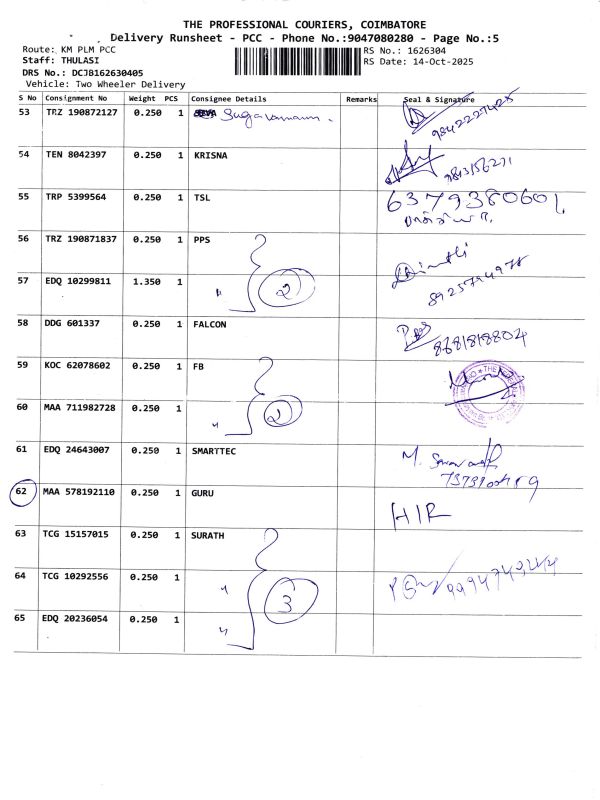 THE PROFESSIONAL COURIERS, COIMBATORE
Delivery Runsheet - PCC - Phone No.:9047080280 - Page No.:5
Route: KM PLM PCC
RS No.: 1626304
Staff: THULASI
RS Date: 14-Oct-2025
DRS No.: DCJB162630405
Vehicle: Two Wheeler Delivery
S No Consignment No Weight PCS Consignee Details Remarks Seal & Signature
53 TRZ 190872127 0.250 1 9842227425
54 TEN 8042397 0.250 1 KRISNA
55 TRP 5399564 0.250 1 TSL 6379380601
56 TRZ 190871837 0.250 1 PPS
57 EDQ 10299811 1.350 1 " 2 8925794978
58 DDG 601337 0.250 1 FALCON 8681818804
59 KOC 62078602 0.250 1 FB
60 MAA 711982728 0.250 1 " 2
61 EDQ 24643007 0.250 1 SMARTTEC M.
62 MAA 578192110 0.250 1 GURU HIR
63 TCG 15157015 0.250 1 SURATH
64 TCG 10292556 0.250 1 " 3
65 EDQ 20236054 0.250 1 "